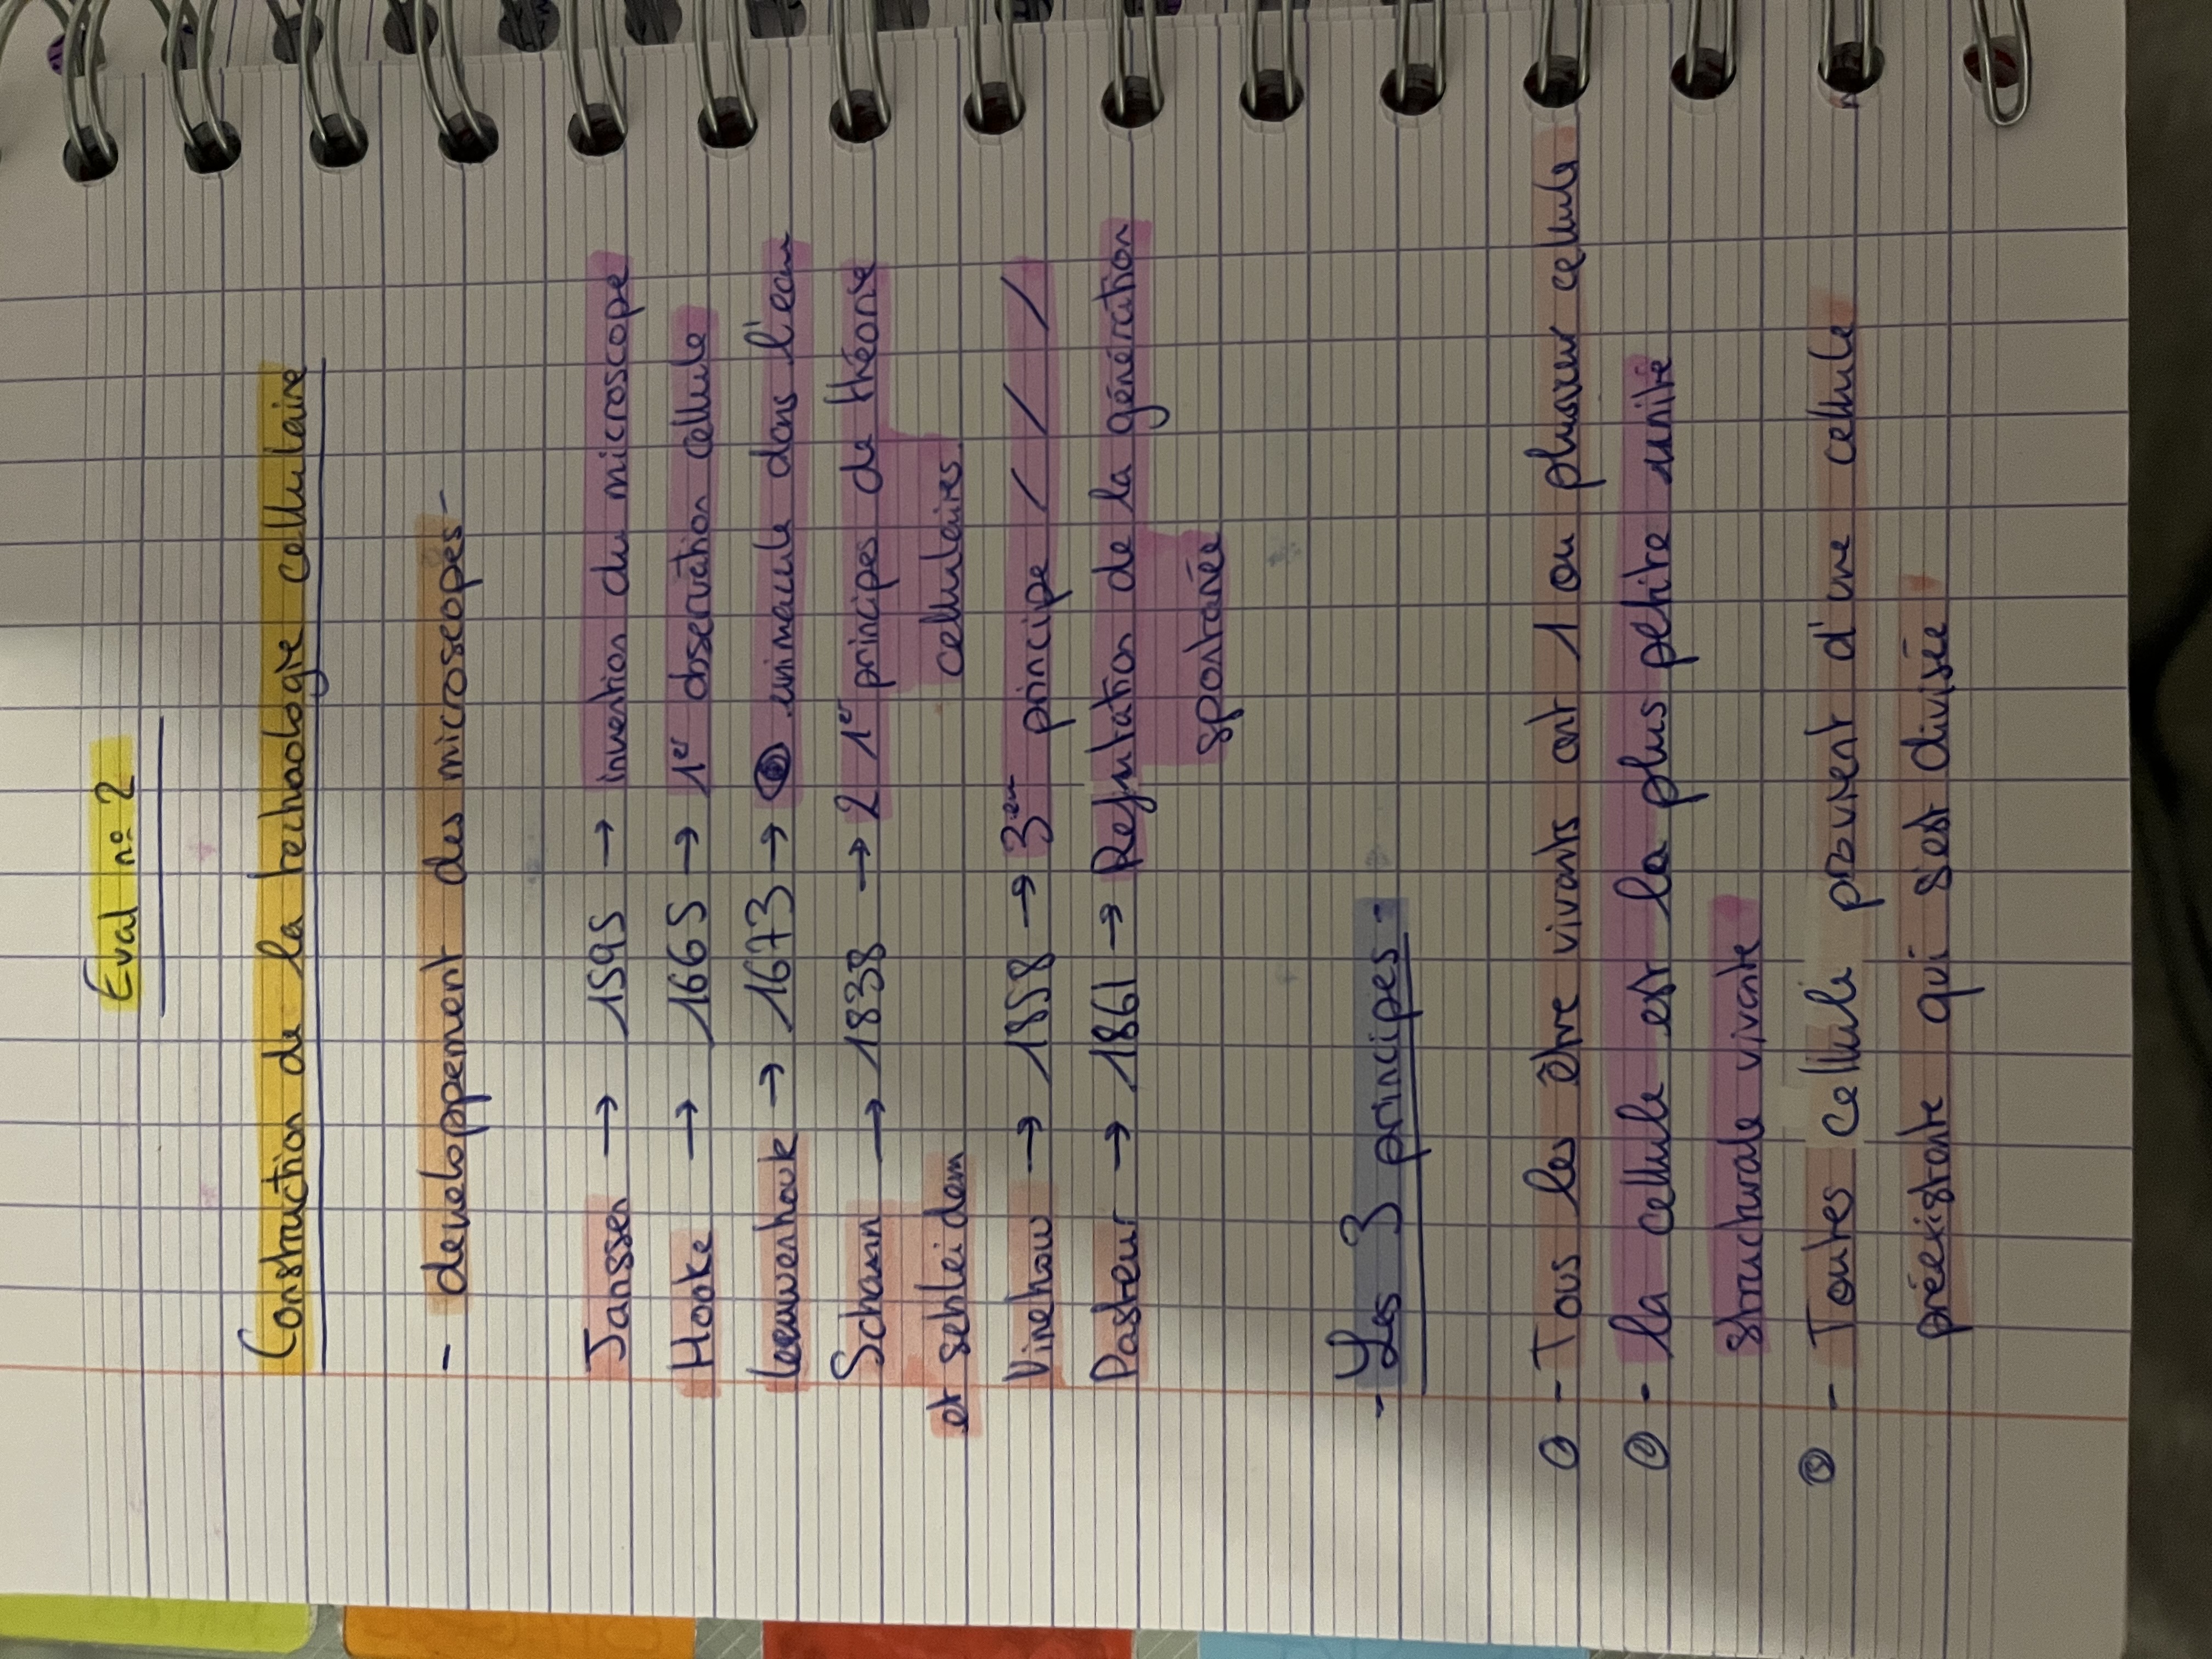 Eval n° 2
Construction de la techaologie cellulaire
- denveloppement des microscopes -
Janssen → 1595 → invention du microscope
Hooke → 1665 → 1er observation cellule
Leeuwenhouk → 1673 → animacule dans l'eau
Schann → 1838 → 2 1er principes de théorise
et schleidem cellulaires
Virehow → 1858 → 3em principe / / /
Pasteur → 1861 → Refutation de la génération
spontanée
- Les 3 principes -
① - Tous les être vivants ont 1 ou plusieur cellule
② - la cellule est la plus petite unité
structurale vivante
③ - Toutes cellule provient d'une cellule
préexistante qui s'est divisée